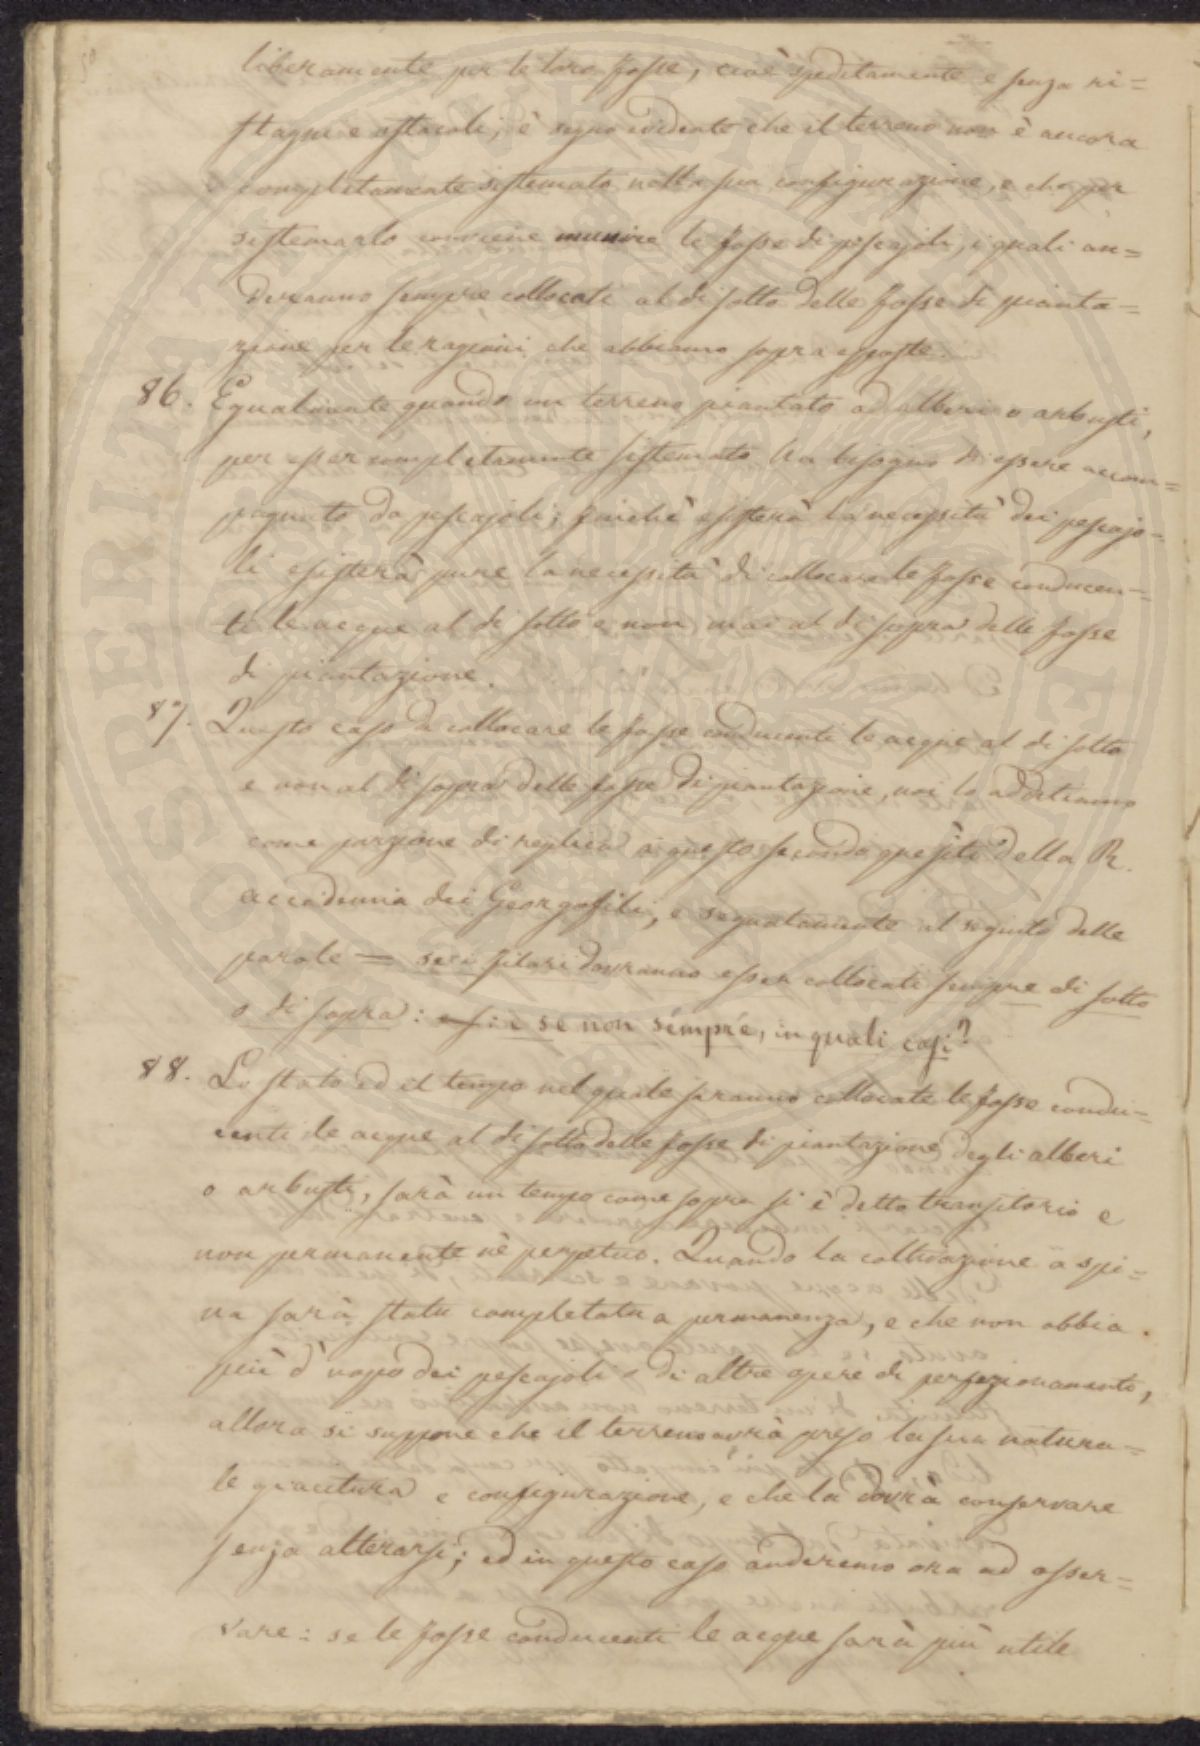 liberamente per le loro fosse, cioè speditamente e senza ri=
stagni e ostacoli, è segno evidente che il terreno non è ancora
completamente sistemato nella sua configurazione, e che per
sistemarlo conviene munire le fosse di pescajoli, i quali an=
deranno sempre collocati al di sotto delle fosse di pianta=
zione per le ragioni che abbiamo sopra esposte.
86. Egualmente quando un terreno piantato ad alberi o arbusti,
per esser completamente sistemato ha bisogno di essere accom=
pagnato da pescajoli; finchè esisterà la necessità dei pescajo=
li esisterà pure la necessità di collocare le fosse conducen=
ti le acque al di sotto e non mai al di sopra delle fosse
di piantazione.
87. Questo caso di collocare le fosse conducenti le acque al di sotto
e non al di sopra delle fosse di piantazione, noi lo additiamo
come porzione di replica a questo secondo quesito della R.
accademia dei Georgofili, e segnatamente al seguito delle
parole = se i filari dovranno esser collocati sempre di sotto
o di sopra: e se non sempre, in quali casi?
88. Lo stato ed il tempo nel quale saranno collocate le fosse condu=
centi le acque al di sotto delle fosse di piantazione degli alberi
o arbusti, sarà un tempo come sopra si è detto transitorio e
non permanente nè perpetuo. Quando la coltivazione a spi=
na sarà stata completata a permanenza, e che non abbia
più d'uopo dei pescajoli o di altre opere di perfezionamento,
allora si suppone che il terreno avrà preso la sua natura=
le giacitura e configurazione, e che la dovrà conservare
senza alterarsi; ed in questo caso anderemo ora ad osser=
vare: se le fosse conducenti le acque sarà più utile
SOSPERITATI PVBLICAE